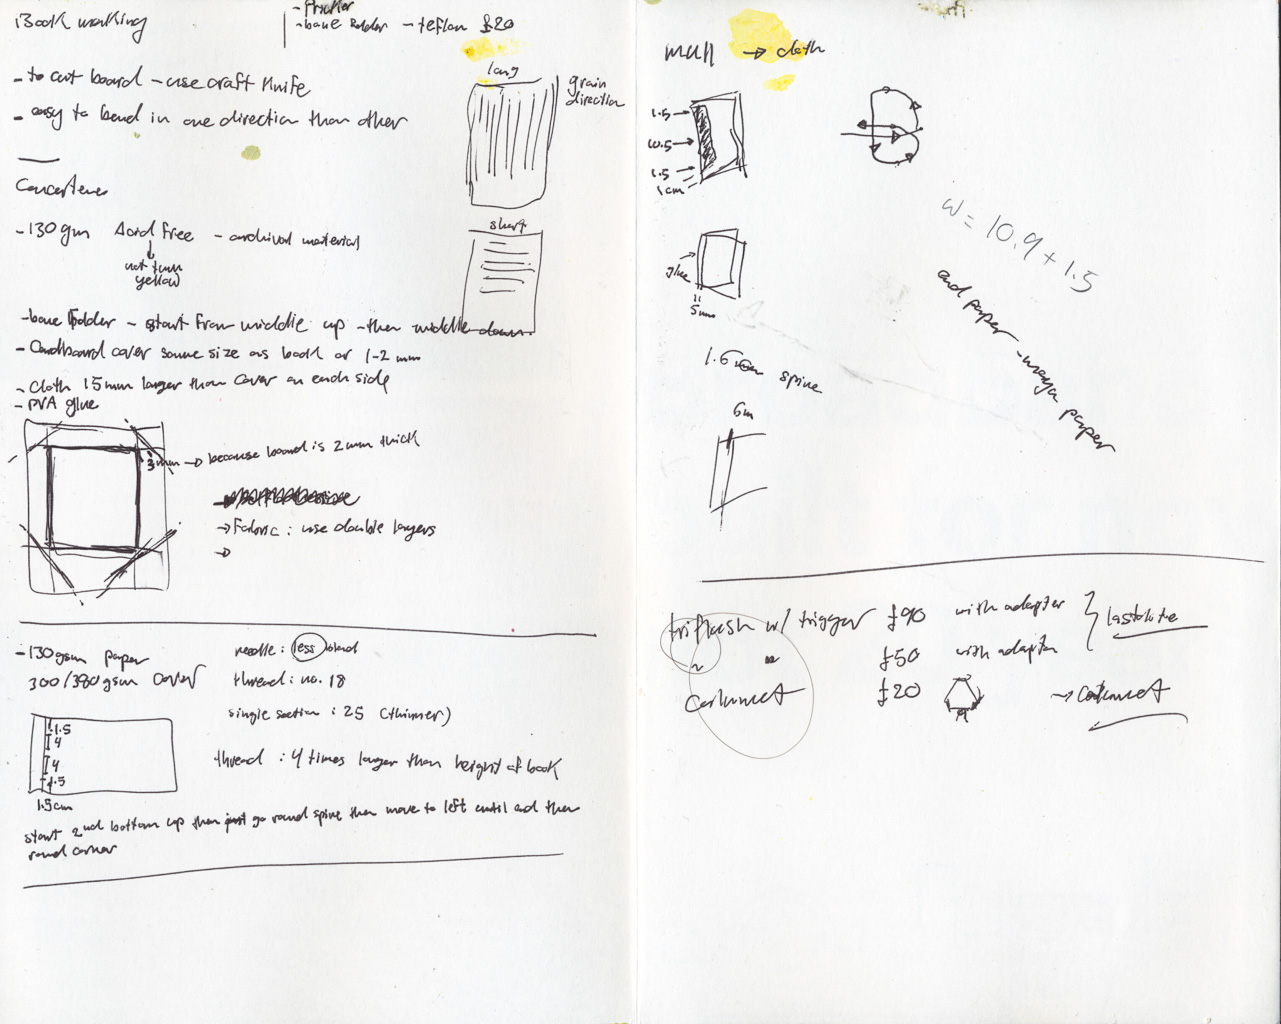 Book making
- Pricker
- bone folder - teflon £20
- to cut board - use craft knife
- easy to bend in one direction than other
long
grain
direction
Concertener
- 130 gsm Acid free - archival material
not turn
yellow
short
- bone folder - start from middle up - then middle down.
- Cardboard cover same size as book or 1-2 mm
- Cloth 15mm larger than cover on each side
- PVA glue
3mm → because board is 2mm thick
→ Fabric : use double layers
→
- 130gsm paper
300/380gsm cover
needle : less bland
thread : no. 18
single section : 25 (thinner)
1.5
4
4
1.5
1.5cm
thread : 4 times larger than height of book
start 2nd bottom up then just go round spine then move to left until end then
round corner
mull → cloth
1.5
10.5
1.5
1cm
w = 10.9 + 1.5
end paper - maya paper
glue
5mm
1.6 spine
6m
triflash w/ trigger £90 with adapter
lastolite
" " £50 with adapter
Calumet £20 → Calumet